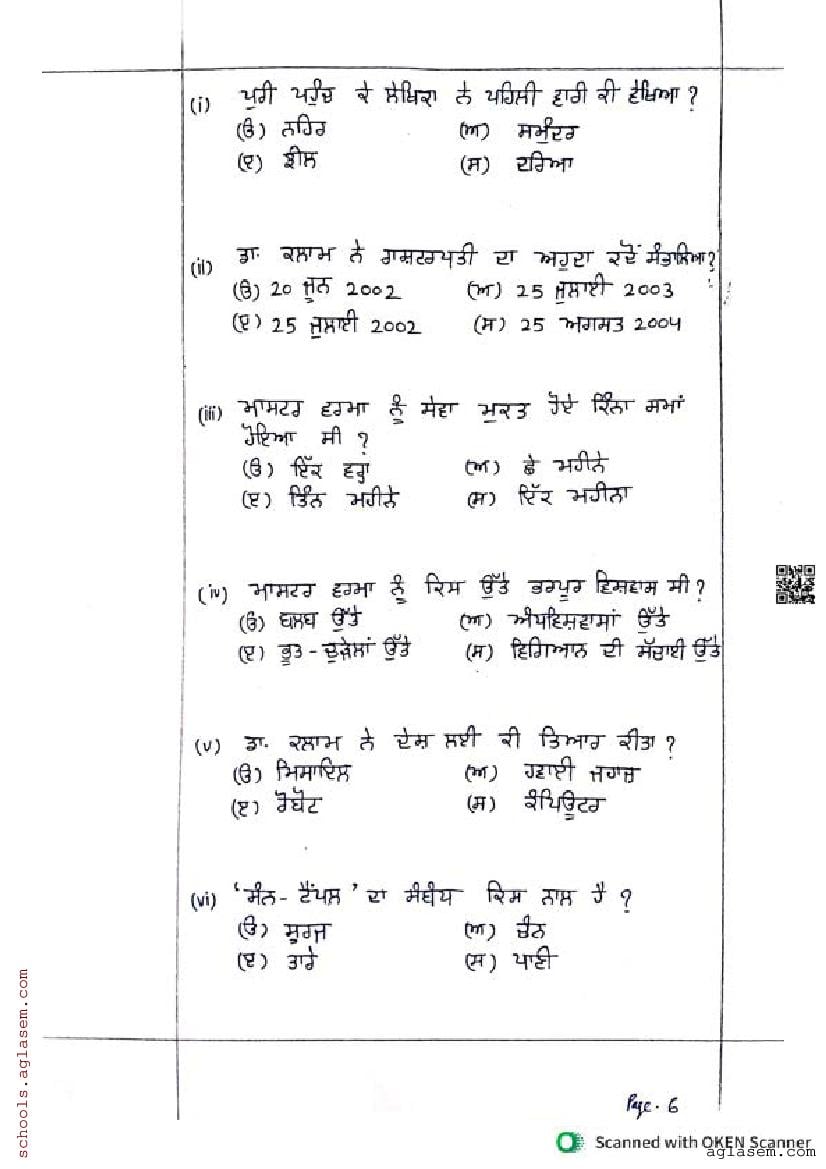 (i) ਪੁਰੀ ਪਹੁੰਚ ਕੇ ਲੇਖਿਕਾ ਨੇ ਪਹਿਲੀ ਵਾਰੀ ਕੀ ਵੇਖਿਆ ?
(ੳ) ਨਹਿਰ (ਅ) ਸਮੁੰਦਰ
(ੲ) ਝੀਲ (ਸ) ਦਰਿਆ
(ii) ਡਾ. ਕਲਾਮ ਨੇ ਰਾਸ਼ਟਰਪਤੀ ਦਾ ਅਹੁਦਾ ਕਦੋਂ ਸੰਭਾਲਿਆ?
(ੳ) 20 ਜੂਨ 2002 (ਅ) 25 ਜੁਲਾਈ 2003
(ੲ) 25 ਜੁਲਾਈ 2002 (ਸ) 25 ਅਗਸਤ 2004
(iii) ਮਾਸਟਰ ਵਰਮਾ ਨੂੰ ਸੇਵਾ ਮੁਕਤ ਹੋਏ ਕਿੰਨਾ ਸਮਾਂ
ਹੋਇਆ ਸੀ ?
(ੳ) ਇੱਕ ਵਰ੍ਹਾ (ਅ) ਛੇ ਮਹੀਨੇ
(ੲ) ਤਿੰਨ ਮਹੀਨੇ (ਸ) ਇੱਕ ਮਹੀਨਾ
(iv) ਮਾਸਟਰ ਵਰਮਾ ਨੂੰ ਕਿਸ ਉੱਤੇ ਭਰਪੂਰ ਵਿਸ਼ਵਾਸ ਸੀ ?
(ੳ) ਬਲਬ ਉੱਤੇ (ਅ) ਅੰਧਵਿਸ਼ਵਾਸਾਂ ਉੱਤੇ
(ੲ) ਭੂਤ - ਚੁੜੇਲਾਂ ਉੱਤੇ (ਸ) ਵਿਗਿਆਨ ਦੀ ਸੱਚਾਈ ਉੱਤੇ
(v) ਡਾ. ਕਲਾਮ ਨੇ ਦੇਸ਼ ਲਈ ਕੀ ਤਿਆਰ ਕੀਤਾ ?
(ੳ) ਮਿਸਾਇਲ (ਅ) ਹਵਾਈ ਜਹਾਜ਼
(ੲ) ਰੋਬੋਟ (ਸ) ਕੰਪਿਊਟਰ
(vi) 'ਸੰਨ- ਟੈਂਪਲ' ਦਾ ਸੰਬੰਧ ਕਿਸ ਨਾਲ ਹੈ ?
(ੳ) ਸੂਰਜ (ਅ) ਚੰਨ
(ੲ) ਤਾਰੇ (ਸ) ਪਾਣੀ
schools.aglasem.com
Page - 6
Scanned with OKEN Scanner
aglasem.com